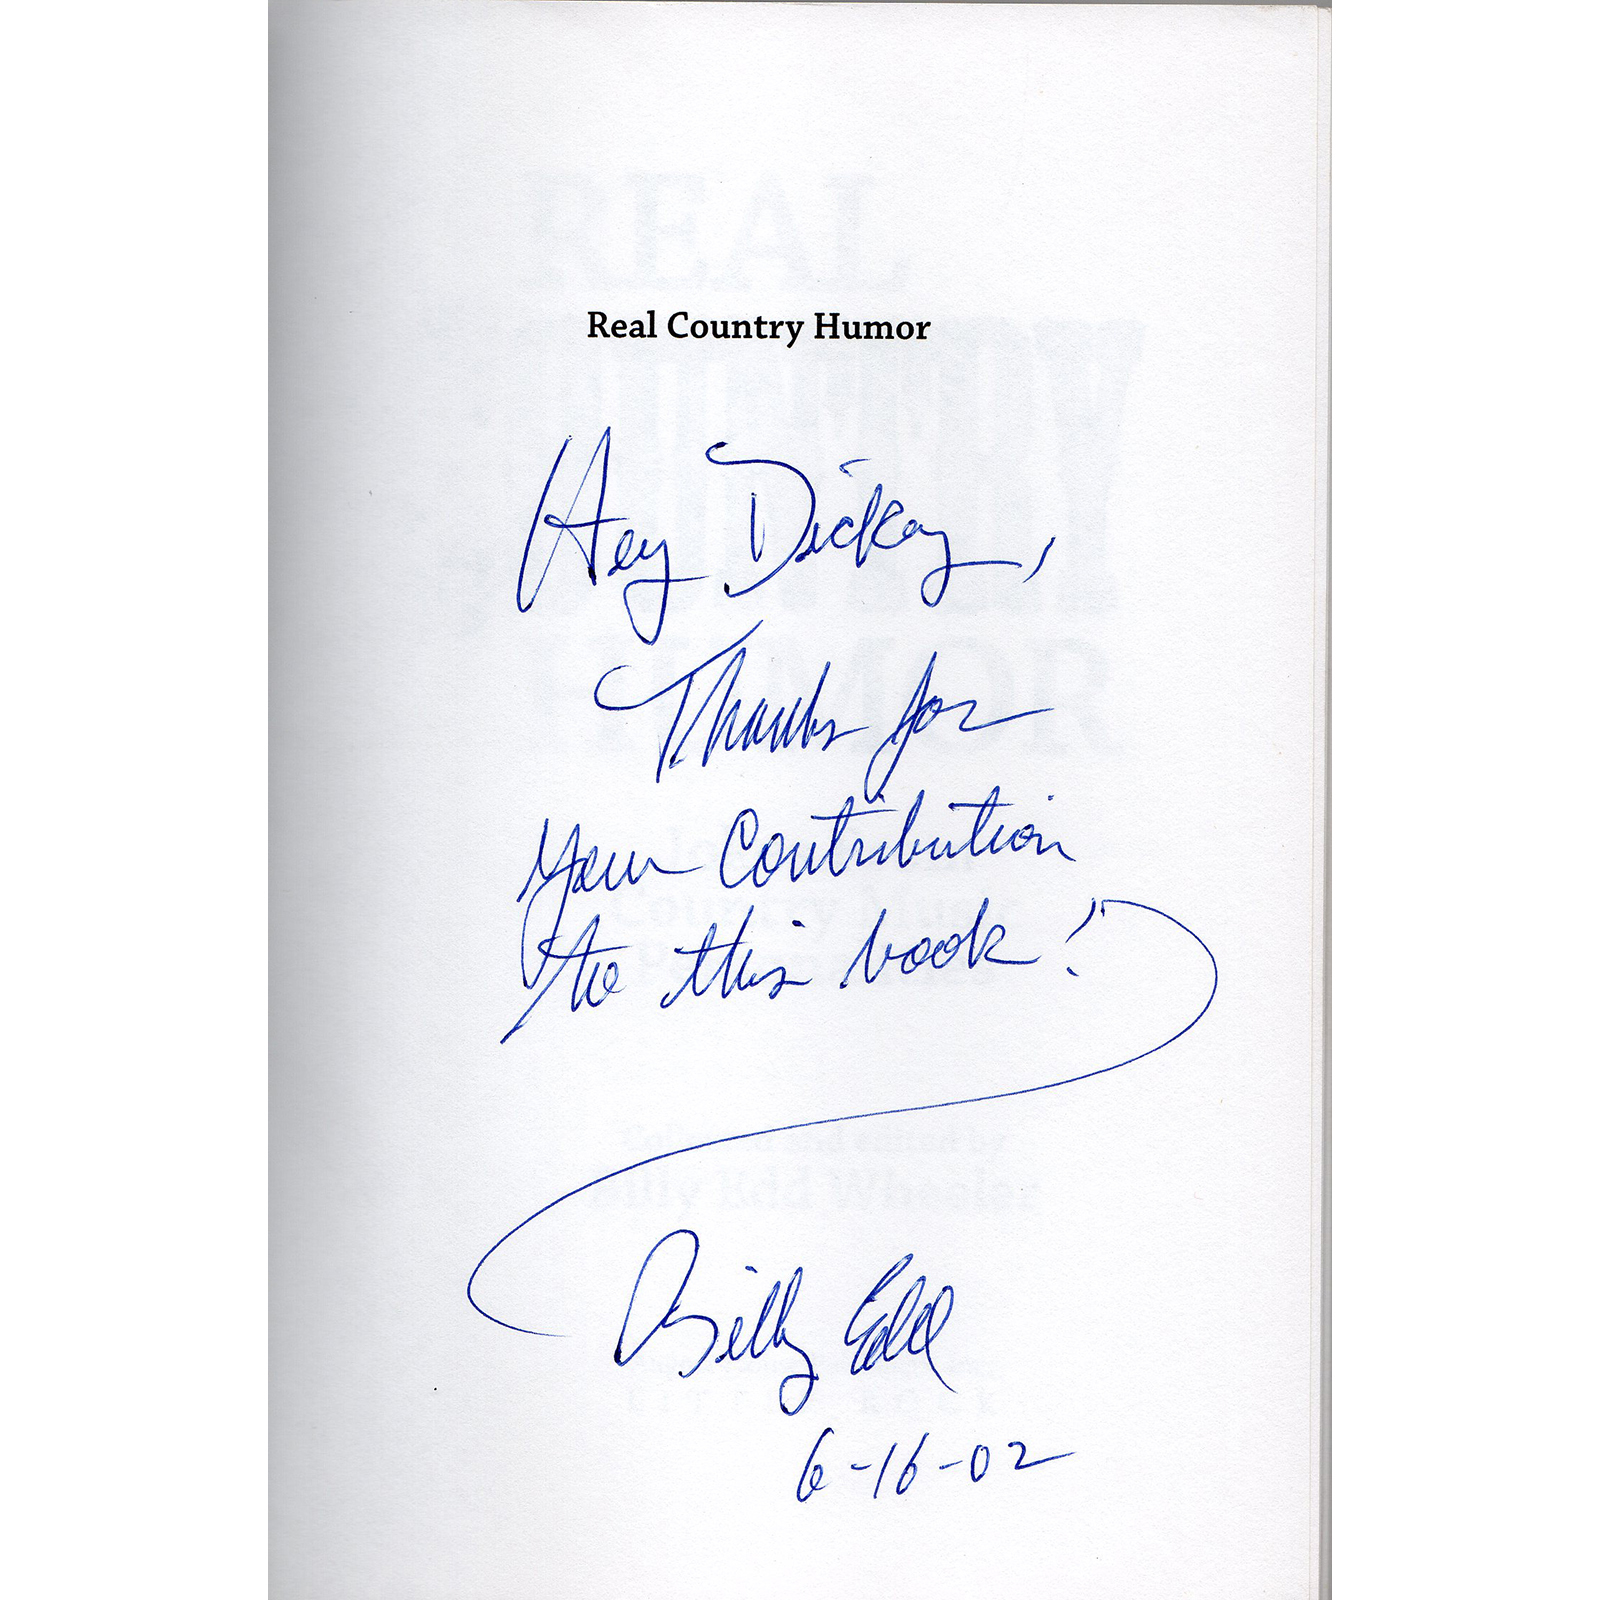 Real Country Humor
Hey Dickey,
Thanks for
your Contribution
to this book!
Billy Edd
6-16-02